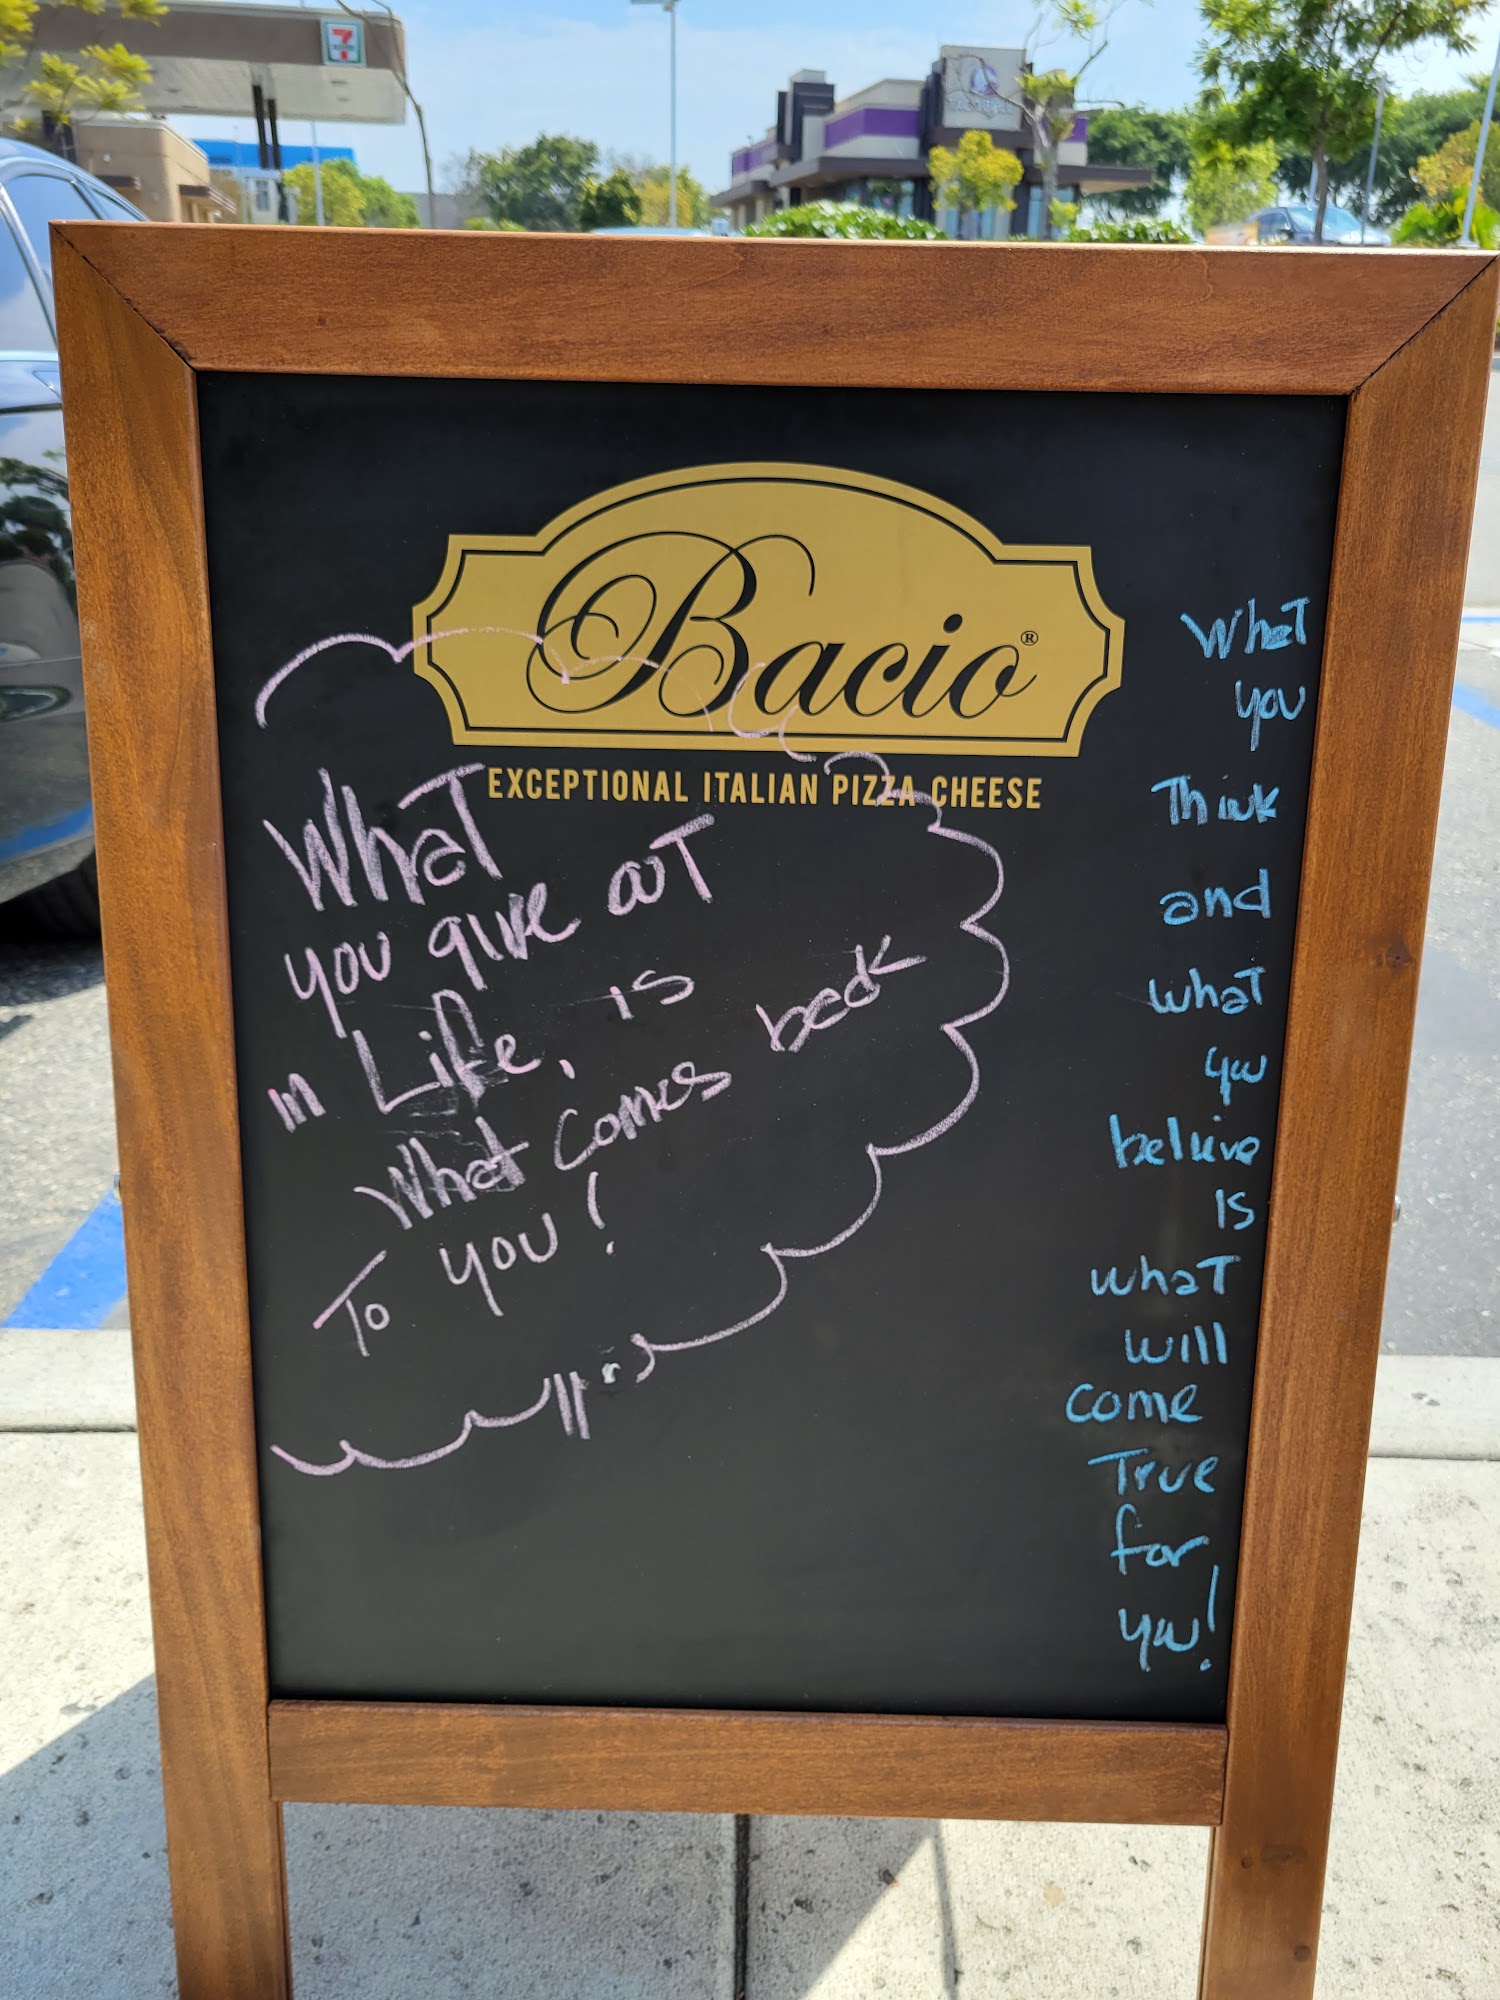 7
TACO BELL
Bacio®
EXCEPTIONAL ITALIAN PIZZA CHEESE
What
you give out
in Life, is
What comes back
To you!
What
you
Think
and
what
you
beleive
is
what
will
come
True
for
you!